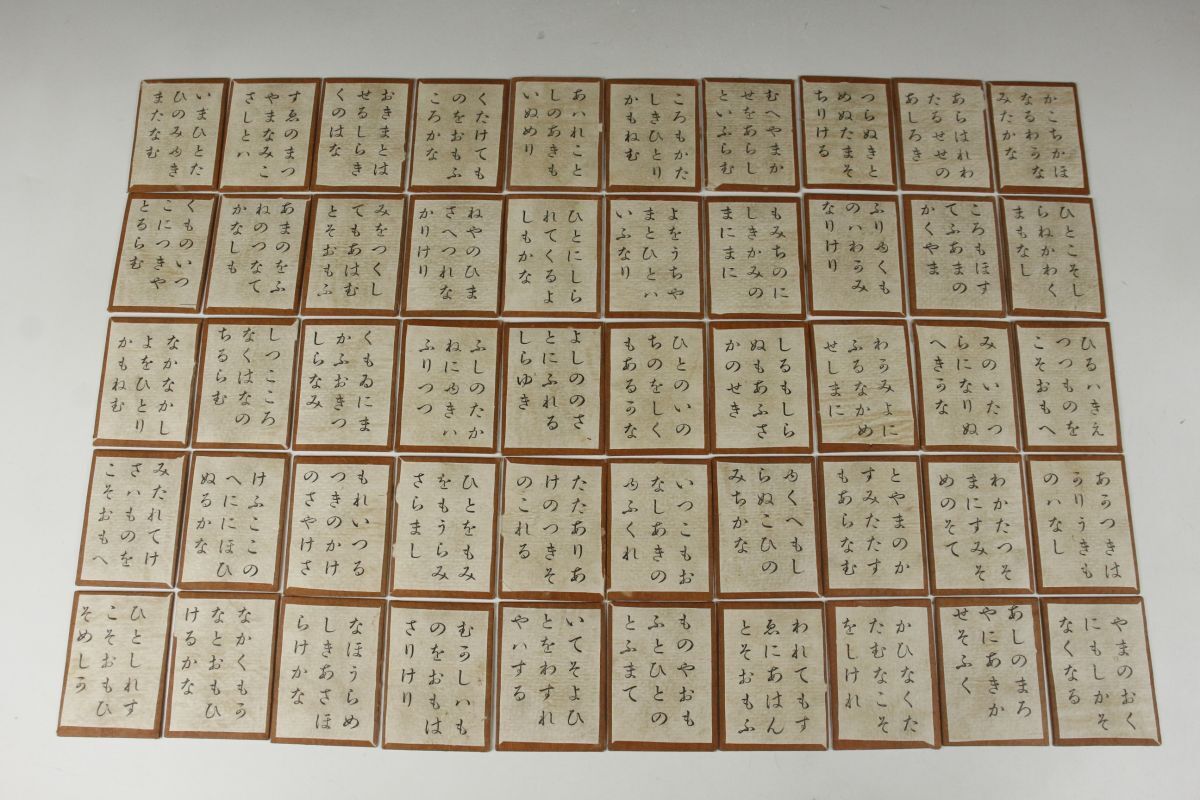 かこちかほ
なるわかな
みたかな
あらはれわ
たるせせの
あしろき
つらぬきと
めぬたまそ
ちりける
むへやまか
せをあらし
といふらむ
ころもかた
しきひとり
かもねむ
あハれこと
しのあきも
いぬめり
くたけても
のをおもふ
ころかな
おきまとは
せるしらき
くのはな
すゑのまつ
やまなみこ
さしとハ
いまひとた
ひのみゆき
またなむ
ひとこそし
らねかわく
まもなし
ころもほす
てふあまの
かくやま
ふりゆくも
のハわかみ
なりけり
もみちのに
しきかみの
まにまに
よをうちや
まとひとハ
いふなり
ひとにしら
れてくるよ
しもかな
ねやのひま
さへつれな
かりけり
みをつくし
てもあはむ
とそおもふ
あまのをふ
ねのつなて
かなしも
くものいつ
こにつきや
とるらむ
ひるハきえ
つつものを
こそおもへ
みのいたつ
らになりぬ
へきかな
わかみよに
ふるなかめ
せしまに
しるもしら
ぬもあふさ
かのせき
ひとのいの
ちのをしく
もあるかな
よしののさ
とにふれる
しらゆき
ふしのたか
ねにゆきハ
ふりつつ
くもゐにま
かふおきつ
しらなみ
しつこころ
なくはなの
ちるらむ
なかなかし
よをひとり
かもねむ
あかつきは
かりうきも
のハなし
わかたつそ
まにすみそ
めのそて
とやまのか
すみたたす
もあらなむ
ゆくへもし
らぬこひの
みちかな
いつこもお
なしあきの
ゆふくれ
たたありあ
けのつきそ
のこれる
ひとをもみ
をもうらみ
さらまし
もれいつる
つきのかけ
のさやけさ
けふここの
へににほひ
ぬるかな
みたれてけ
さハものを
こそおもへ
やまのおく
にもしかそ
なくなる
あしのまろ
やにあきか
せそふく
かひなくた
たむなこそ
をしけれ
われてもす
ゑにあはん
とそおもふ
ものやおも
ふとひとの
とふまて
いてそよひ
とをわすれ
やハする
むかしハも
のをおもは
さりけり
なほうらめ
しきあさほ
らけかな
なかくもか
なとおもひ
けるかな
ひとしれす
こそおもひ
そめしか